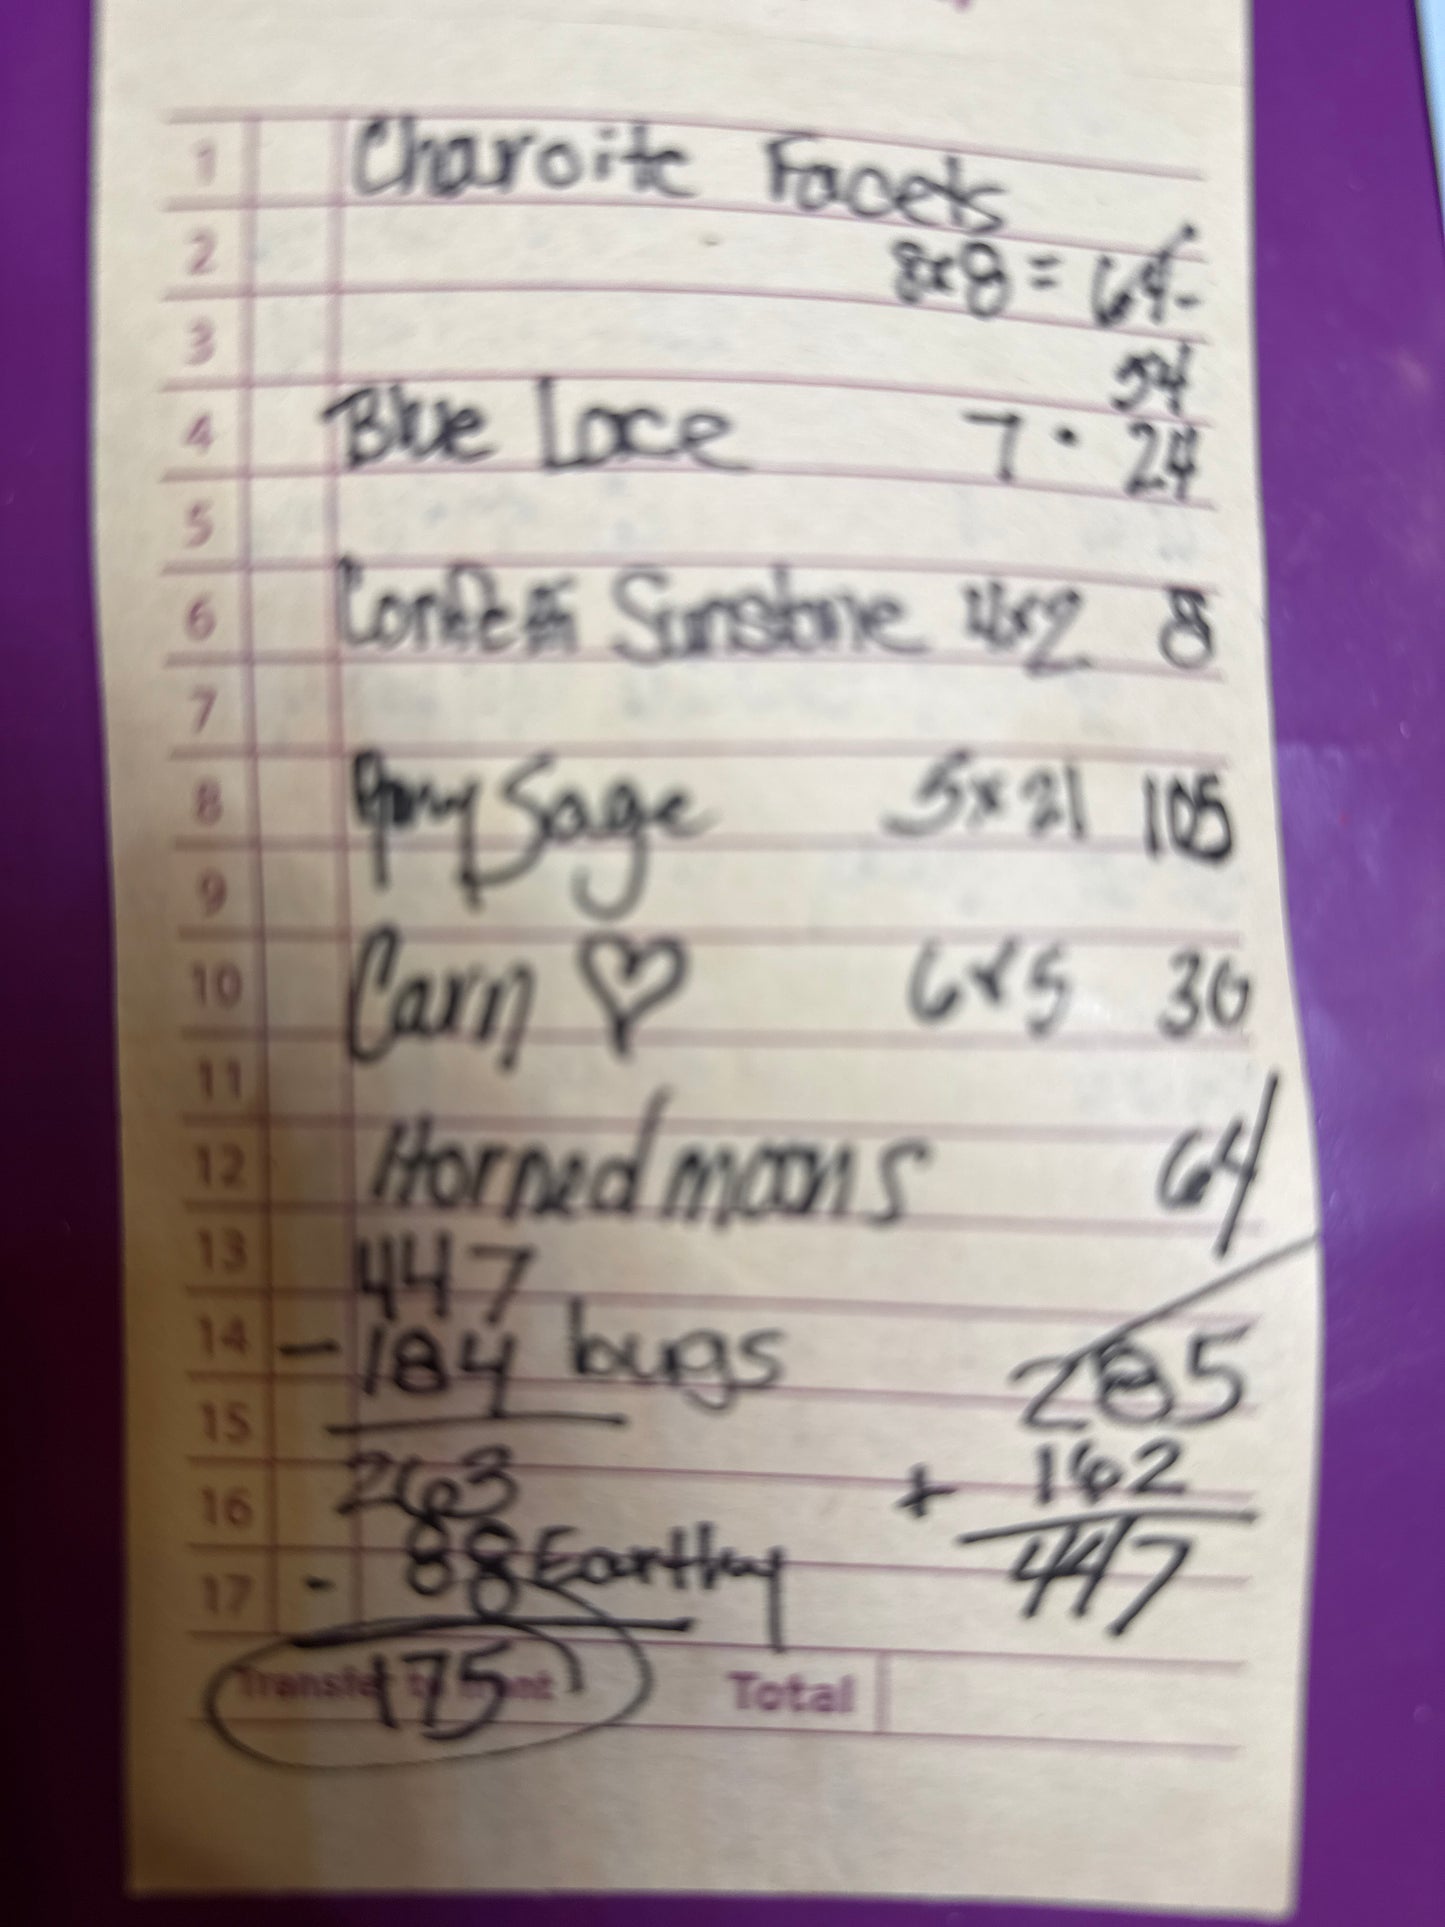 1 Charoite Facets
2 8x8 = 64-
3 54
4 Blue Lace 7 • 24
5
6 Confetti Sunstone 4x2 8
7
8 Sage 5x21 105
9
10 Carn ♡ 6x5 30
11
12 Horned moons 64
13 447
14 - 184 bugs 285
15 + 162
16 263 447
17 - 88 Earthy
175 Total